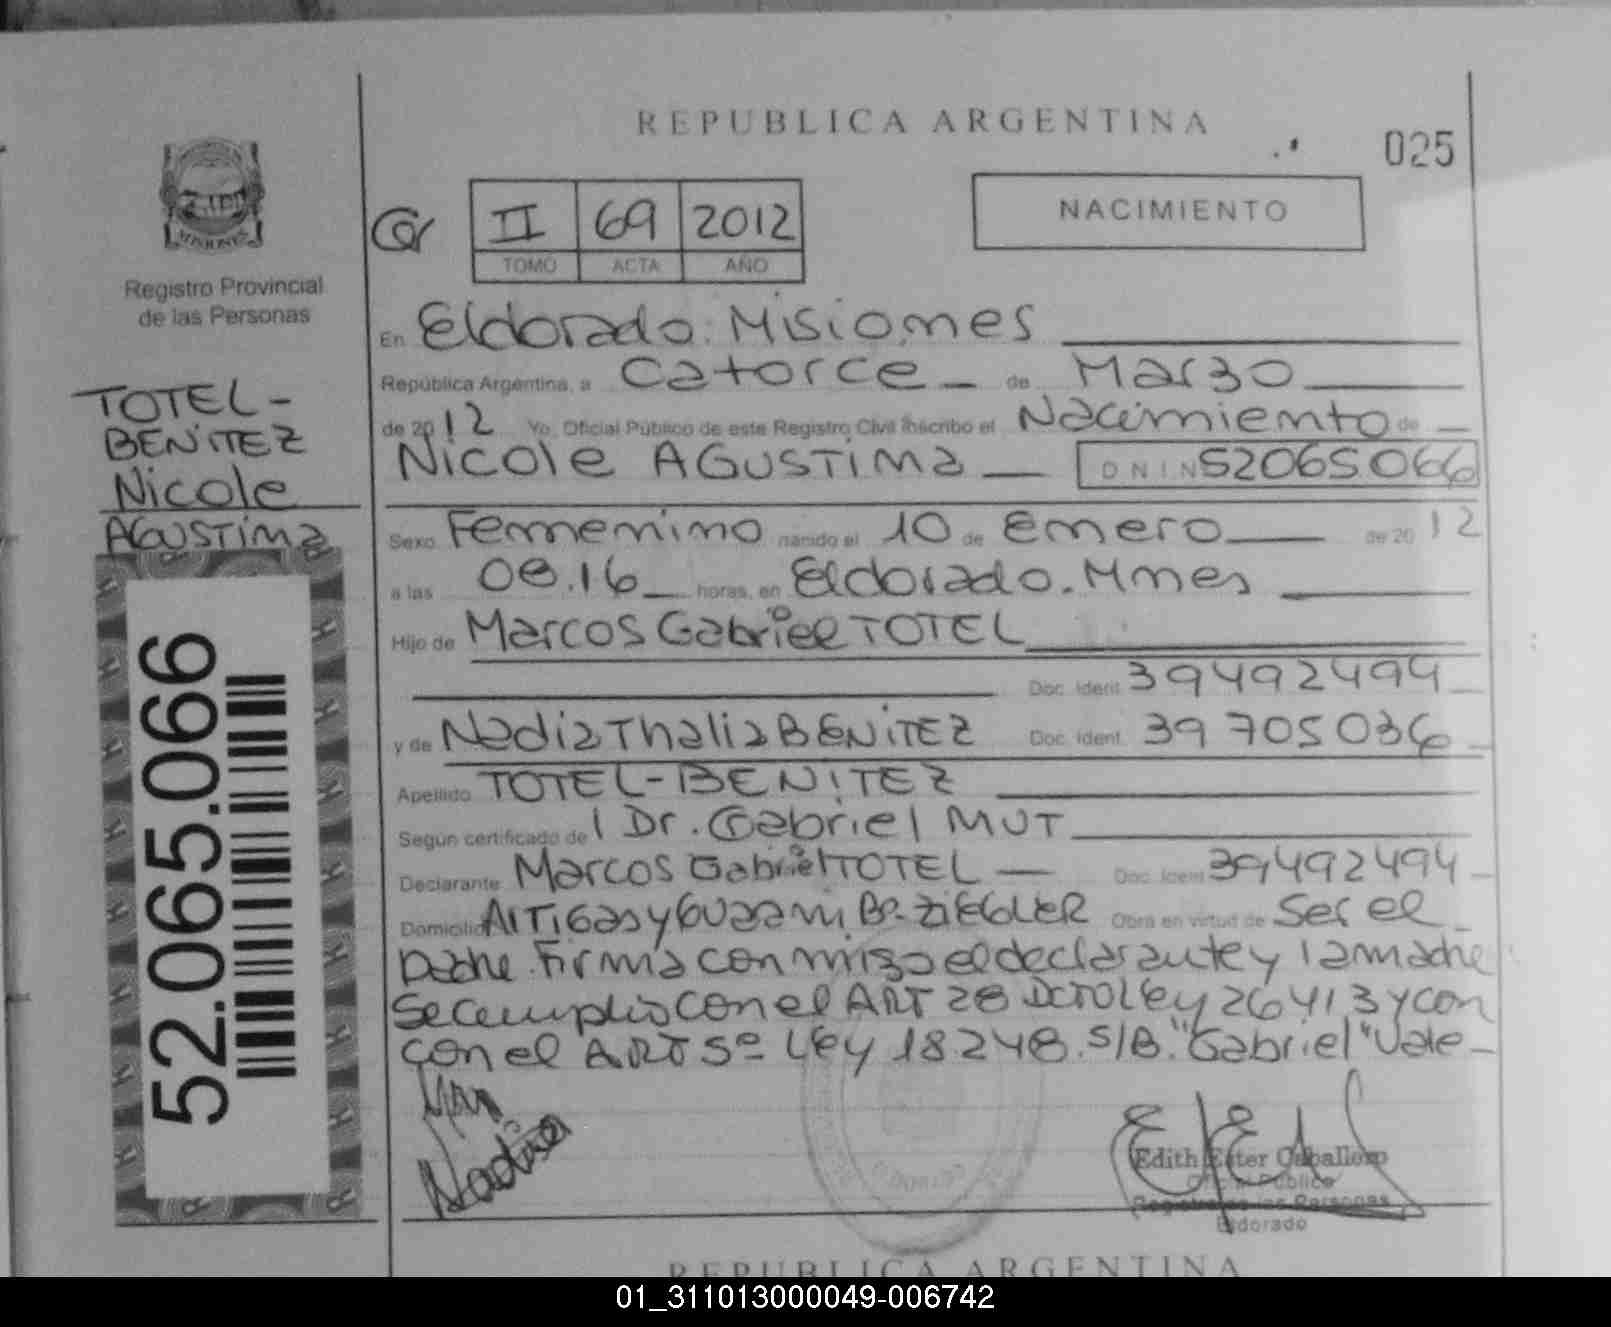 REPUBLICA ARGENTINA
025
MISIONES
Registro Provincial
de las Personas
II 69 2012
TOMO ACTA AÑO
NACIMIENTO
TOTEL-
BENITEZ
Nicole
AGUSTINA
52.065.066
En Eldorado. Misiones
República Argentina, a Catorce de Marzo
de 2012 Yo, Oficial Público de este Registro Civil inscribo el Nacimiento de
Nicole AGUSTINA DNI N 52065066
Sexo Femenino nacido el 10 de Enero de 2012
a las 08.16 horas, en Eldorado. Mnes
Hijo de Marcos Gabriel TOTEL
Doc. Ident. 39492494
y de Nadia Thalia BENITEZ Doc. Ident. 39705036
Apellido TOTEL-BENITEZ
Según certificado de l Dr. Gabriel MUT
Declarante Marcos Gabriel TOTEL Doc. Ident 39492494
Domicilio ARTIGAS y GUARANI Bo. ZIEGLER Obra en virtud de Ser el
Padre. Firma conmigo el declarante y la madre
Se cumplio con el ART 28 DCTO Ley 26413 y con
con el ART 5º Ley 18248. S/B. "Gabriel" Vale
Nadia
Edith Ester Caballero
Oficial Público
Registro de las Personas
Eldorado
REPUBLICA ARGENTINA
01_311013000049-006742